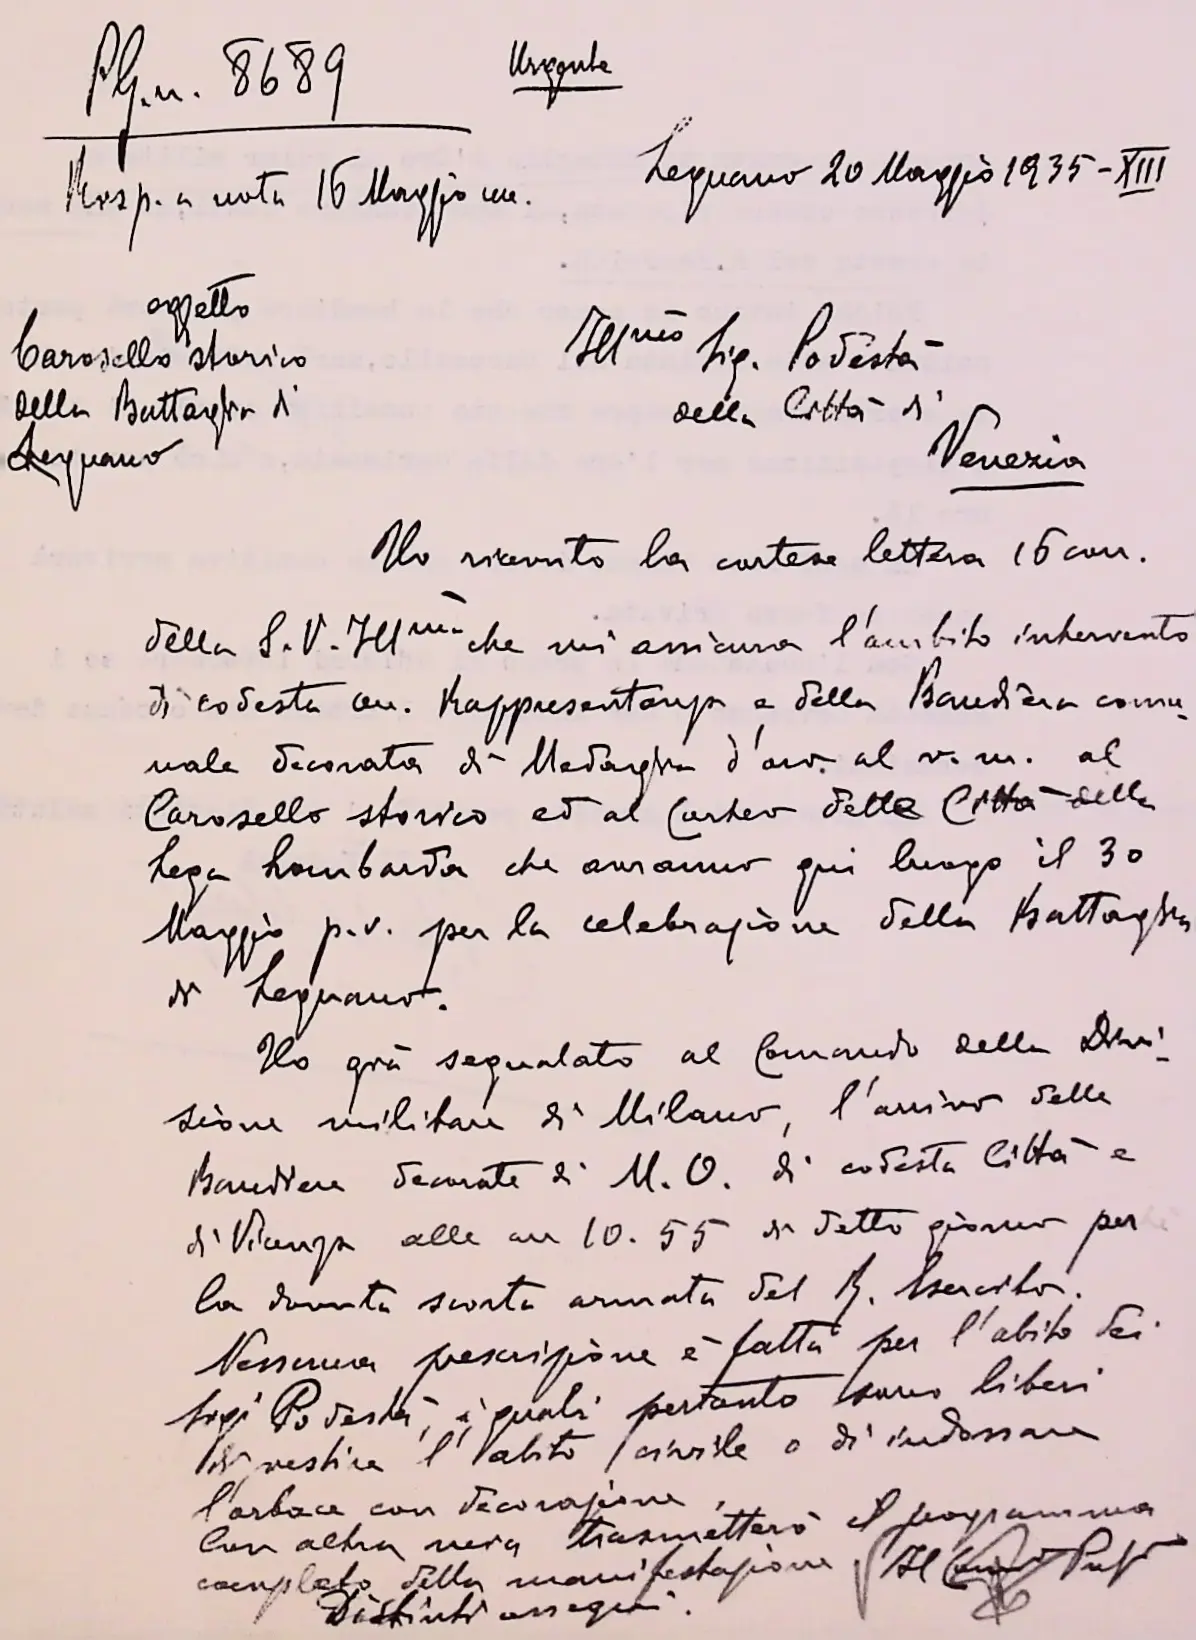 P.G.n. 8689
Urgente
Legnano 20 Maggio 1935-XIII
Risp. a nota 16 Maggio
oggetto
Carosello storico
della Battaglia di
Legnano
Ill mo Sig. Podestà
della Città di
Venezia
Ho ricevuto la cortese lettera 16 corr.
della S.V. Ill ma che mi assicura l'ambito intervento
di codesta on. Rappresentanza e della Bandiera comu-
nale decorata di Medaglia d'oro al v.m. al
Carosello storico ed al Corteo delle Città della
Lega Lombarda che avranno qui luogo il 30
Maggio p.v. per la celebrazione della Battaglia
di Legnano.
Ho già segnalato al Comando della Divi-
sione militare di Milano, l'arrivo delle
Bandiere decorate di M.O. di codesta Città e
di Vicenza alle ore 10.55 di detto giorno per
la dovuta scorta armata del R. Esercito.
Nessuna prescrizione è fatta per l'abito dei
Sigi Podestà, i quali pertanto sono liberi
di vestire l'abito civile o di indossare
l'orbace con decorazione.
Con altra mia trasmetterò il programma
completo della manifestazione
Distinti ossequi.
Il Pref